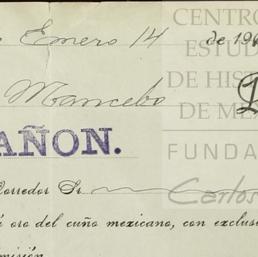 Enero 14 de 190
CENTRO
ESTUD
Mancebo
DE HIS
DE MÉ
AÑON.
FUNDA
Corredor Sr. Carlos
oro del cuño mexicano, con exclus
misión.